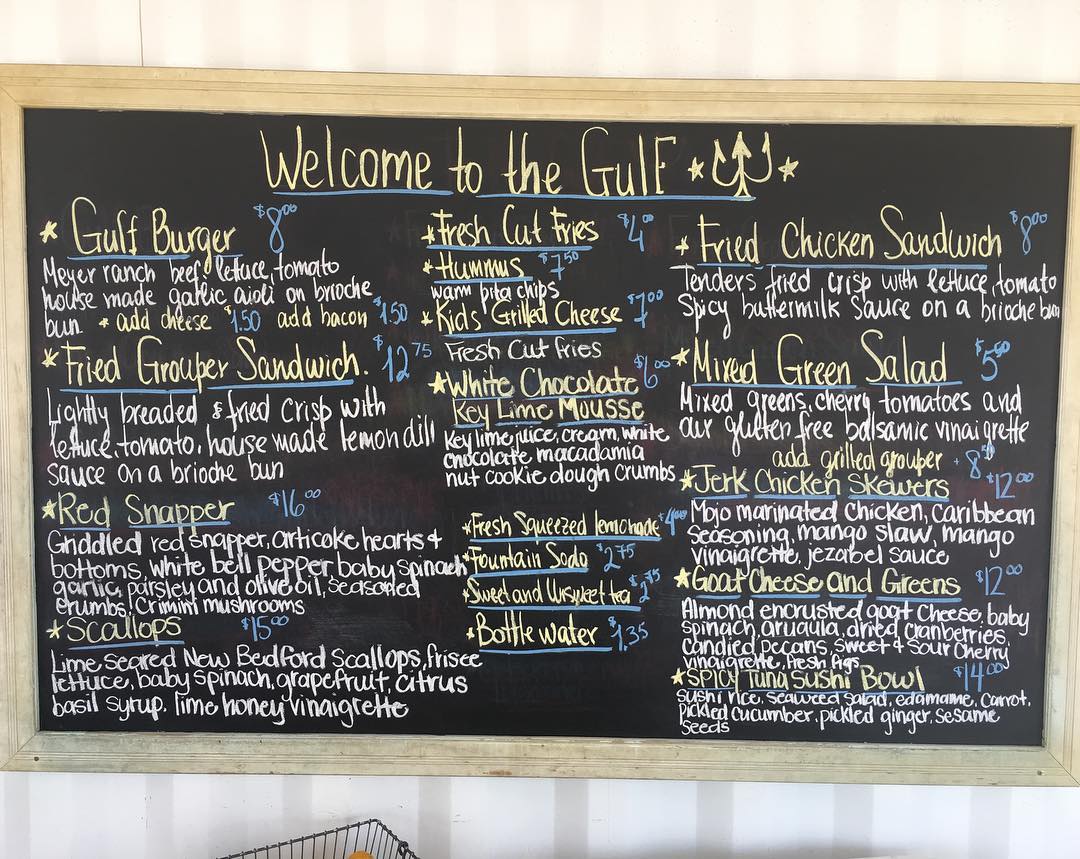 Welcome to the Gulf
* Gulf Burger $8.00
Meyer ranch beef, lettuce, tomato
house made garlic aioli on brioche
bun * add cheese $1.50 add bacon $1.50
* Fried Grouper Sandwich. $12.75
Lightly breaded & fried crisp with
lettuce, tomato, house made lemon dill
sauce on a brioche bun
* Red Snapper $16.00
Griddled red snapper, articoke hearts +
bottoms, white bell pepper baby spinach
garlic, parsley and olive oil, seasoned
crumbs, Crimini mushrooms
* Scallops $15.00
Lime seared New Bedford Scallops, frisee
lettuce, baby spinach, grapefruit, citrus
basil syrup, lime honey vinaigrette
* Fresh Cut Fries $4.00
* Hummus $7.50
warm pita chips
* Kids Grilled Cheese $7.00
Fresh Cut fries
* White Chocolate $6.00
Key Lime Mousse
Key lime juice, cream, white
chocolate macadamia
nut cookie dough crumbs
* Fresh Squeezed lemonade $4.00
* Fountain Soda $2.75
* Sweet and Unsweet tea $2.75
* Bottle water $1.35
* Fried Chicken Sandwich $8.00
Tenders fried crisp with lettuce, tomato
Spicy buttermilk sauce on a brioche bun
* Mixed Green Salad $5.50
Mixed greens, cherry tomatoes and
our gluten free balsamic vinaigrette
add grilled grouper + $8
* Jerk Chicken Skewers $12.00
Mojo marinated chicken, caribbean
seasoning, mango slaw, mango
vinaigrette, jezabel sauce
* Goat Cheese and Greens $12.00
Almond encrusted goat cheese, baby
spinach, aruqula, dried cranberries,
candied pecans, sweet & sour cherry
vinaigrette, fresh figs
* Spicy Tuna Sushi Bowl $14.00
sushi rice, seaweed salad, edamame, carrot,
pickled cucumber, pickled ginger, sesame
seeds